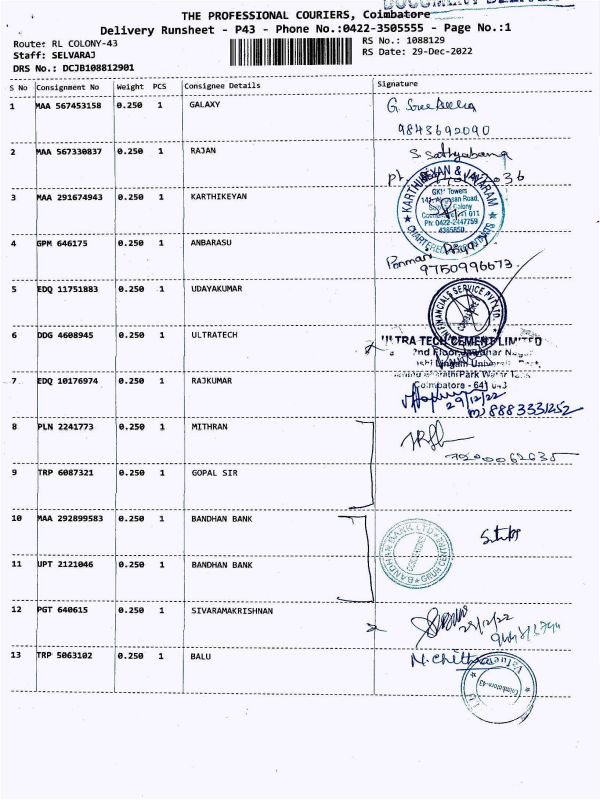 THE PROFESSIONAL COURIERS, Coimbatore
Delivery Runsheet - P43 - Phone No.:0422-3505555 - Page No.:1
Route: RL COLONY-43
RS No.: 1088129
Staff: SELVARAJ
RS Date: 29-Dec-2022
DRS No.: DCJB108812901
S No Consignment No Weight PCS Consignee Details Signature
1 MAA 567453158 0.250 1 GALAXY
9843692090
2 MAA 567330837 0.250 1 RAJAN
S. Sathyabama
KARTHIKEYAN & JAYARAM
GKM Towers
3 MAA 291674943 0.250 1 KARTHIKEYAN
CHARTERED ACCOUNTANTS
4 GPM 646175 0.250 1 ANBARASU
9750996673
5 EDQ 11751883 0.250 1 UDAYAKUMAR
FINANCIALS SERVICE PVT LTD
6 DDG 4608945 0.250 1 ULTRATECH
ULTRA TECH CEMENT LIMITED
2nd Floor, Jawahar Nagar
Coimbatore - 641 043
7 EDQ 10176974 0.250 1 RAJKUMAR
29/12/22
8883331252
8 PLN 2241773 0.250 1 MITHRAN
9 TRP 6087321 0.250 1 GOPAL SIR
10 MAA 292899583 0.250 1 BANDHAN BANK
BANDHAN BANK LTD
11 UPT 2121046 0.250 1 BANDHAN BANK
12 PGT 640615 0.250 1 SIVARAMAKRISHNAN
29/12/22
13 TRP 5063102 0.250 1 BALU
N. Chithra
Coimbatore-43